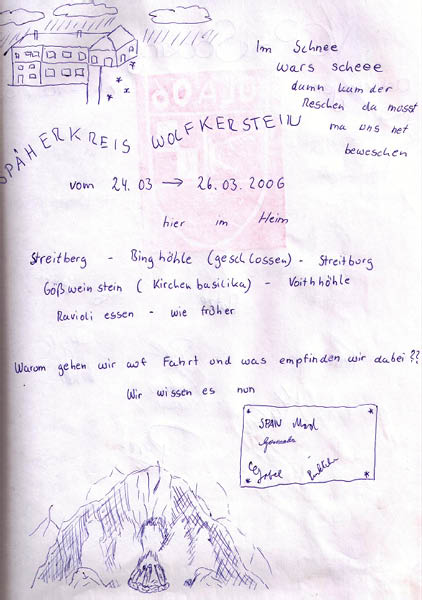 Im Schnee
wars scheee
dann kam der
Reschen da musst
ma uns net
beweschen
SPÄHERKREIS WOLFKERSTEIN
vom 24.03 → 26.03.2006
hier im Heim
Streitberg - Binghöhle (geschlossen) - Streitburg
Gößweinstein (Kirchenbasilika) - Voithhöhle
Ravioli essen - wie früher
Warum gehen wir auf Fahrt und was empfinden wir dabei??
Wir wissen es nun